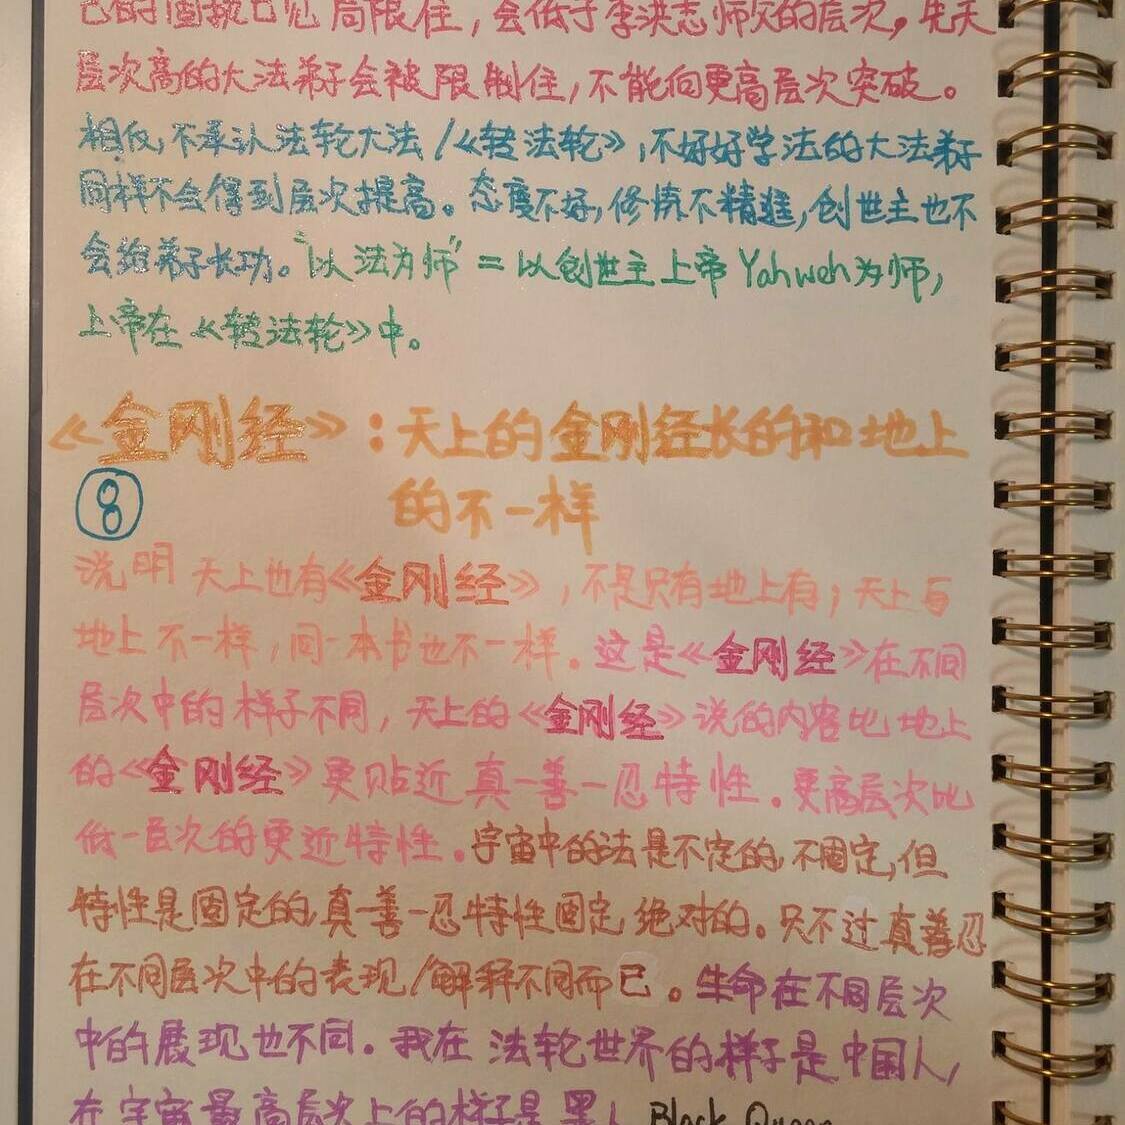 己的固执己见局限住，会低于李洪志师父的层次。先天
层次高的大法弟子会被限制住，不能向更高层次突破。
相仪，不承认法轮大法/《转法轮》，不好好学法的大法弟子
同样不会得到层次提高。态度不好，修炼不精進，创世主也不
会给弟子长功。"以法为师"＝以创世主上帝Yahweh为师，
上帝在《转法轮》中。
《金刚经》：天上的金刚经长的和地上
的不一样
⑧
说明天上也有《金刚经》，不是只有地上有；天上与
地上不一样，同一本书也不一样。这是《金刚经》在不同
层次中的样子不同，天上的《金刚经》说的内容比地上
的《金刚经》更贴近真一善一忍特性。更高层次比
低一层次的更近特性。宇宙中的法是不定的，不固定，但
特性是固定的，真一善一忍特性固定，绝对的。只不过真善忍
在不同层次中的表现/解释不同而已。生命在不同层次
中的展现也不同。我在法轮世界的样子是中国人，
在宇宙最高层次上的样子是黑人Black Queen